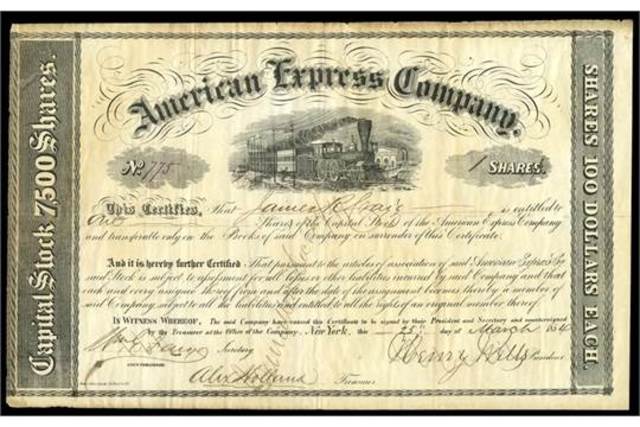 American Express Company.
No. 775
1 SHARES.
This Certifies, That James R. Craig is entitled to
One Shares of the Capital Stock of the American Express Company
and transferable only on the Books of said Company on surrender of this Certificate.
And it is hereby further Certified. That pursuant to the articles of association of said American Express Co
said Stock is subject to assessment for all losses or other liabilities incurred by said Company and that
each and every assignee thereof from and after the date of the assignment becomes thereby a member of
said Company subject to all the liabilities and entitled to all the rights of an original member thereof
IN WITNESS WHEREOF, The said Company have caused this Certificate to be signed by their President and Secretary and countersigned
by the Treasurer at the Office of the Company, New York, this 25 day of March 1864
Wm G. Fargo Secretary
Henry Wells President
Alex Holland Treasurer
Capital Stock 7,500 Shares.
SHARES 100 DOLLARS EACH.